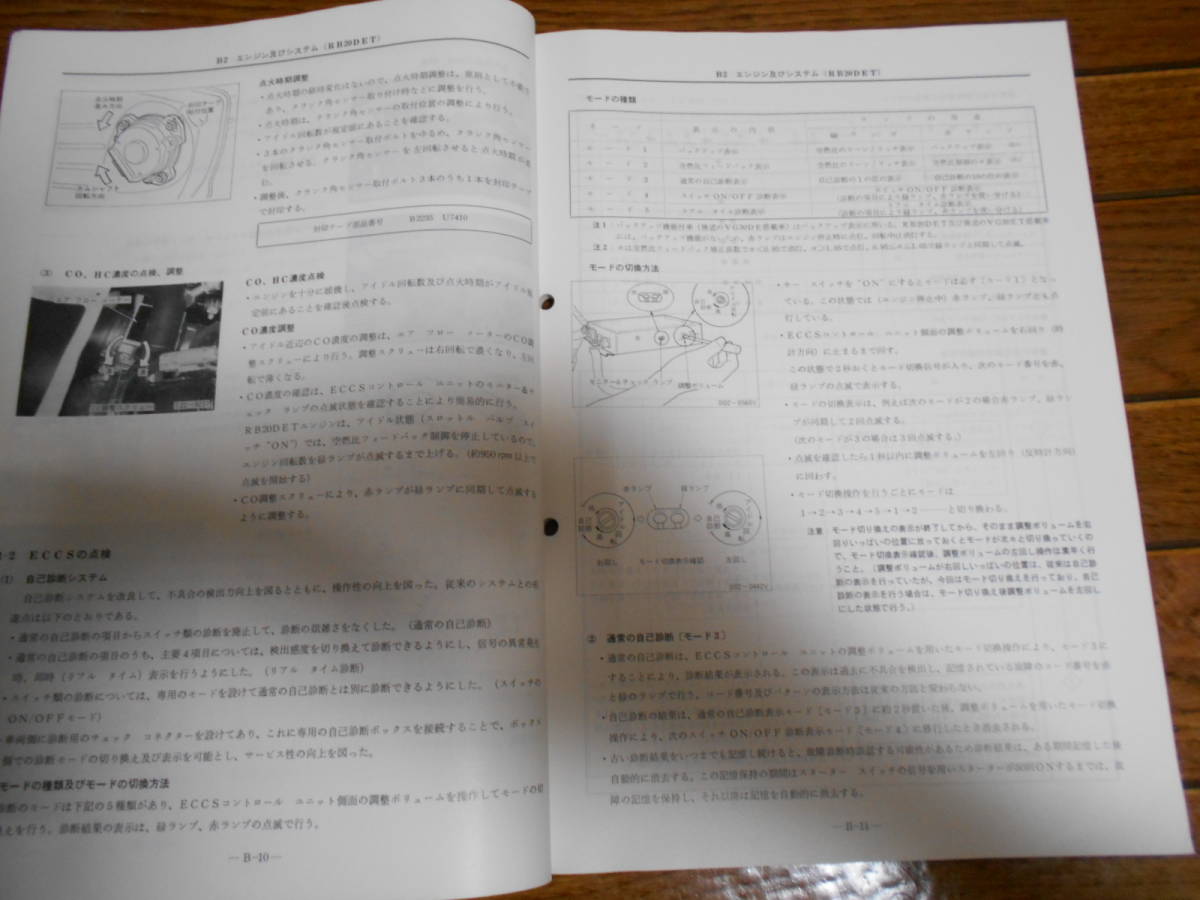 B2 エンジン及びシステム（RB20DET）
点火時期調整
・点火時期の経時変化はないので、点火時期調整は、原則として不要で
あり、クランク角センサー取り付け時などに調整を行う。
・点火時期は、クランク角センサーの取付位置の調整により行う。
・アイドル回転数が規定値にあることを確認する。
・3本のクランク角センサー取付ボルトをゆるめ、クランク角センサー
を回転させる。クランク角センサーを左回転させると点火時期が
・調整後、クランク角センサー取付ボルト3本のうち1本を封印テープ
で封印する。
封印テープ部品番号 B2235 U7410
点火時期
進み方向
封印テープ
貼付位置
カムシャフト
回転方向
(3) CO、HC濃度の点検、調整
エア フロー メーター
CO調整スクリュー
CO、HC濃度点検
・エンジンを十分に暖機し、アイドル回転数及び点火時期がアイドル規
定値にあることを確認後点検する。
CO濃度調整
・アイドル近辺のCO濃度の調整は、エア フロー メーターのCO調
整スクリューにより行う。調整スクリューは右回転で濃くなり、左回
転で薄くなる。
・CO濃度の確認は、ECCSコントロール ユニットのモニター&チ
ェック ランプの点滅状態を確認することにより簡易的に行う。
RB20DETエンジンは、アイドル状態（スロットル バルブ スイ
ッチ“ON”）では、空燃比フィードバック制御を停止しているので、
エンジン回転数を緑ランプが点滅するまで上げる。（約950rpm以上で
点滅を開始する）
・CO調整スクリューにより、赤ランプが緑ランプに同期して点滅する
ように調整する。
1-2 ECCSの点検
(1) 自己診断システム
自己診断システムを改良して、不具合の検出力向上を図るとともに、操作性の向上を図った。従来のシステムとの相
違点は以下のとおりである。
・通常の自己診断の項目からスイッチ類の診断を廃止して、診断の煩雑さをなくした。（通常の自己診断）
・通常の自己診断の項目のうち、主要4項目については、検出感度を切り換えて診断できるようにし、信号の異常発生
時、即時（リアル タイム）表示を行うようにした。（リアル タイム診断）
・スイッチ類の診断については、専用のモードを設けて通常の自己診断とは別に診断できるようにした。（スイッチの
ON/OFFモード）
車両側に診断用のチェック コネクターを設けてあり、これに専用の自己診断ボックスを接続することで、ボックス
側での診断モードの切り換え及び表示を可能とし、サービス性の向上を図った。
モードの種類及びモードの切換方法
診断のモードは下記の5種類があり、ECCSコントロール ユニット側面の調整ボリュームを操作してモードの切
換えを行う。診断結果の表示は、緑ランプ、赤ランプの点滅で行う。
—B-10—
B2 エンジン及びシステム（RB20DET）
モードの種類
モード 表示の内容 ランプの点滅
緑ランプ 赤ランプ
モード 1 バックアップ表示
モード 2 空燃比フィードバック表示 空燃比のリーン/リッチ表示
モード 3 通常の自己診断表示 自己診断の1の位の表示 自己診断の10の位の表示
モード 4 スイッチON/OFF診断表示 スイッチON/OFF診断表示
モード 5 リアル タイム診断表示 リアル タイム診断表示
モードの切換方法
モニター&チェック ランプ 調整ボリューム
・キー スイッチを“ON”にするとモードは必ず［モード1］となっ
ている。この状態では（エンジン停止中）赤ランプ、緑ランプとも点
灯している。
・ECCSコントロール ユニット側面の調整ボリュームを右回り（時
計方向）に止まるまで回す。
この状態で2秒おくとモード切換信号が入り、次のモード番号を赤、
緑ランプの点滅で表示する。
・モードの切換表示は、例えば次のモードが2の場合赤ランプ、緑ラン
プが同期して2回点滅する。
（次のモードが3の場合は3回点滅する。）
・点滅を確認したら1秒以内に調整ボリュームを左回り（反時計方向）
に回わす。
・モード切換操作を行うごとにモードは
1→2→3→4→5→1→2……と切り換わる。
赤ランプ 緑ランプ
右回し モード切換表示確認 左回し
注意 モード切り換えの表示が終了してから、そのまま調整ボリュームを右
回りいっぱいの位置に放っておくとモードが次々と切り換っていくの
で、モード切換表示確認後、調整ボリュームの左回し操作は素早く行
うこと。（調整ボリュームが右回しいっぱいの位置は、従来は自己診
断の表示を行っていたが、今回はモード切り換えを行っており、自己
診断の表示を行う場合は、モード切り換え後調整ボリュームを左回し
にした状態で行う。）
② 通常の自己診断〔モード3〕
・通常の自己診断は、ECCSコントロール ユニットの調整ボリュームを用いたモード切換操作により、モード3に
することにより、診断結果が表示される。この表示は過去に不具合を検出し、記憶されている故障のコード番号を赤
と緑のランプで行う。コード番号及びパターンの表示方法は従来の方法と変わらない。
・自己診断の結果は、通常の自己診断表示モード［モード3］に約2秒置いた後、調整ボリュームを用いたモード切換
操作により、次のスイッチON/OFF診断表示モード［モード4］に移行したとき消去される。
・古い診断結果をいつまでも記憶し続けると、故障診断時誤認する可能性があるため診断結果は、ある期間記憶した後
自動的に消去する。この記憶保持の期間はスターター スイッチの信号を用いスターターが50回ONするまでは、故
障の記憶を保持し、それ以降は記憶を自動的に消去する。
—B-11—